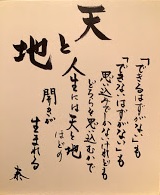 天と地
「できるはずがない」も
「できないはずがない」も
思い込みでしかないけれども
どちらを思い込むかで
人生には天と地
ほどの
開きが
生まれる